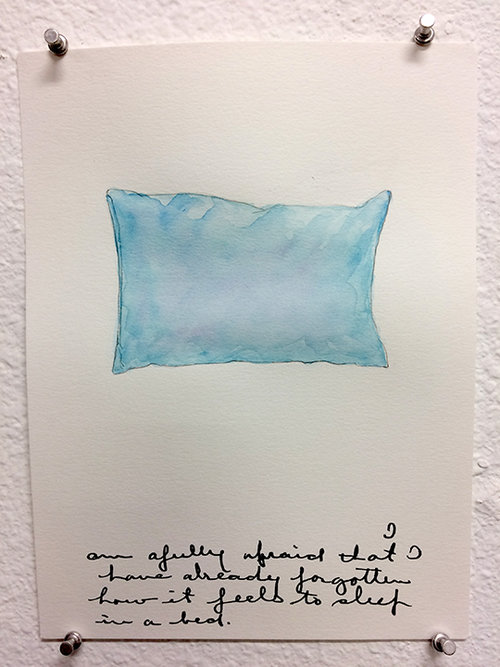 I
am afully afraid that I
have already forgotten
how it feels to sleep
in a bed.